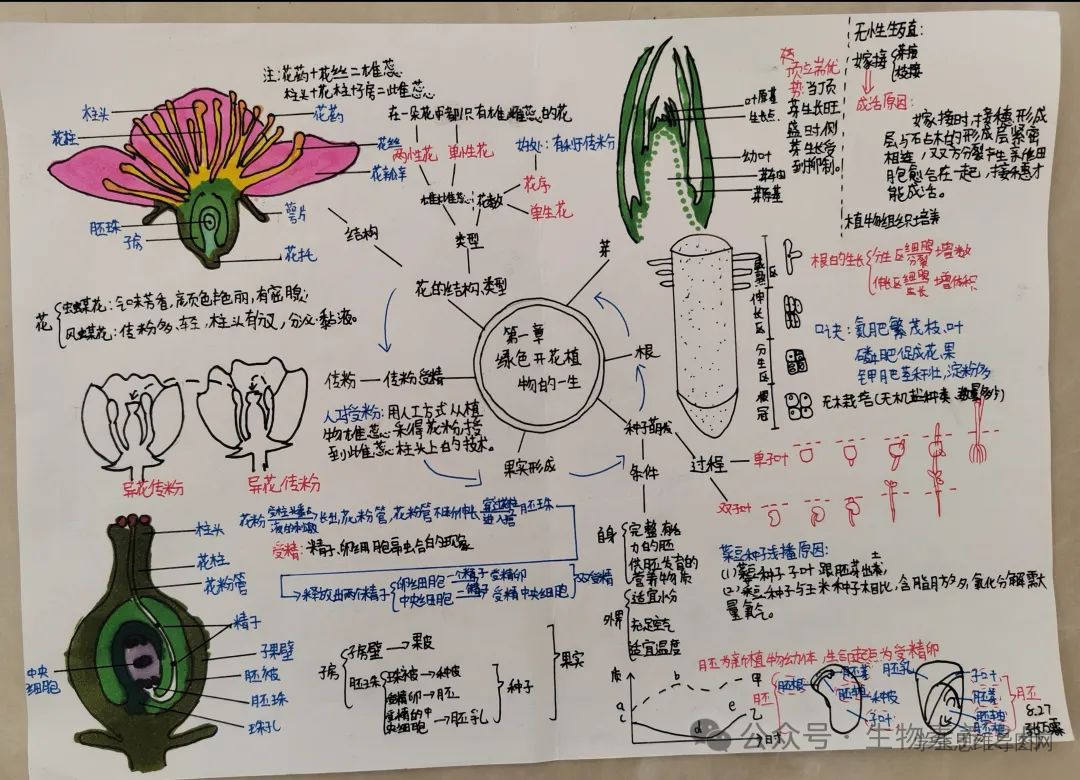 注:花药+花丝=雄蕊
柱头+花柱+子房=雌蕊
柱头
花柱
花药
花丝
花瓣
胚珠
子房
萼片
花托
结构
在一朵花中都只有雄/雌蕊的花
两性花
单性花
雄雌蕊
花数
好处:有利于传粉
花序
单生花
类型
花的结构、类型
花
虫媒花:气味芳香,颜色艳丽,有蜜腺;
风媒花:传粉多,轻,柱头有分叉,分泌黏液。
异花传粉
异花传粉
第一章
绿色开花植物的一生
传粉
传粉受精
人工受粉:用人工方式从植
物雄蕊采得花粉接
到雌蕊柱头上的技术。
果实形成
芽
根
种子萌发
条件
过程
叶原基
生长点
幼叶
芽轴
芽原基
顶端优
势:当顶
芽生长旺
盛时,侧
芽生长受
到抑制。
无性生殖:
嫁接
芽接
枝接
成活原因:
嫁接时,接穗形成
层与砧木的形成层紧密
胞愈合在一起,接穗才
能成活。
植物组织培养
成熟区
伸长区
分生区
根冠
根的生长
分生区细胞分裂增数
伸长区细胞生长增体积
口诀:氮肥繁茂枝叶
磷肥促成花果
钾肥茎秆壮,淀粉多
无土栽培(无机盐种类、数量多少)
单子叶
双子叶
自身
完整有活
力的胚
供胚发育的
营养物质
外界
适宜水分
充足空气
适宜温度
菜豆种子浅播原因:
(1)菜豆种子子叶跟胚芽出土;
(2)菜豆种子与玉米种子相比,含脂肪多,氧化分解需大
量氧气。
柱头
花柱
花粉管
精子
子房壁
胚被
胚珠
珠孔
中央
细胞
花粉
长出花粉管,花粉管不断伸长
进入
胚珠
受精:精子、卵细胞融合的现象
释放出两个精子
卵细胞 一个精子 受精卵
中央细胞 一精子 受精中央细胞
双受精
子房
子房壁→果皮
胚珠
珠被→种皮
受精卵→胚
受精的中央细胞→胚乳
种子
果实
质
a
b
c
d
e
甲
乙
时
胚为新植物幼体,生命起点为受精卵
胚
胚根
胚芽
胚轴
种皮
子叶
胚乳
子叶
胚芽
胚轴
胚根
胚
8.27
公众号·生物
思维导图网